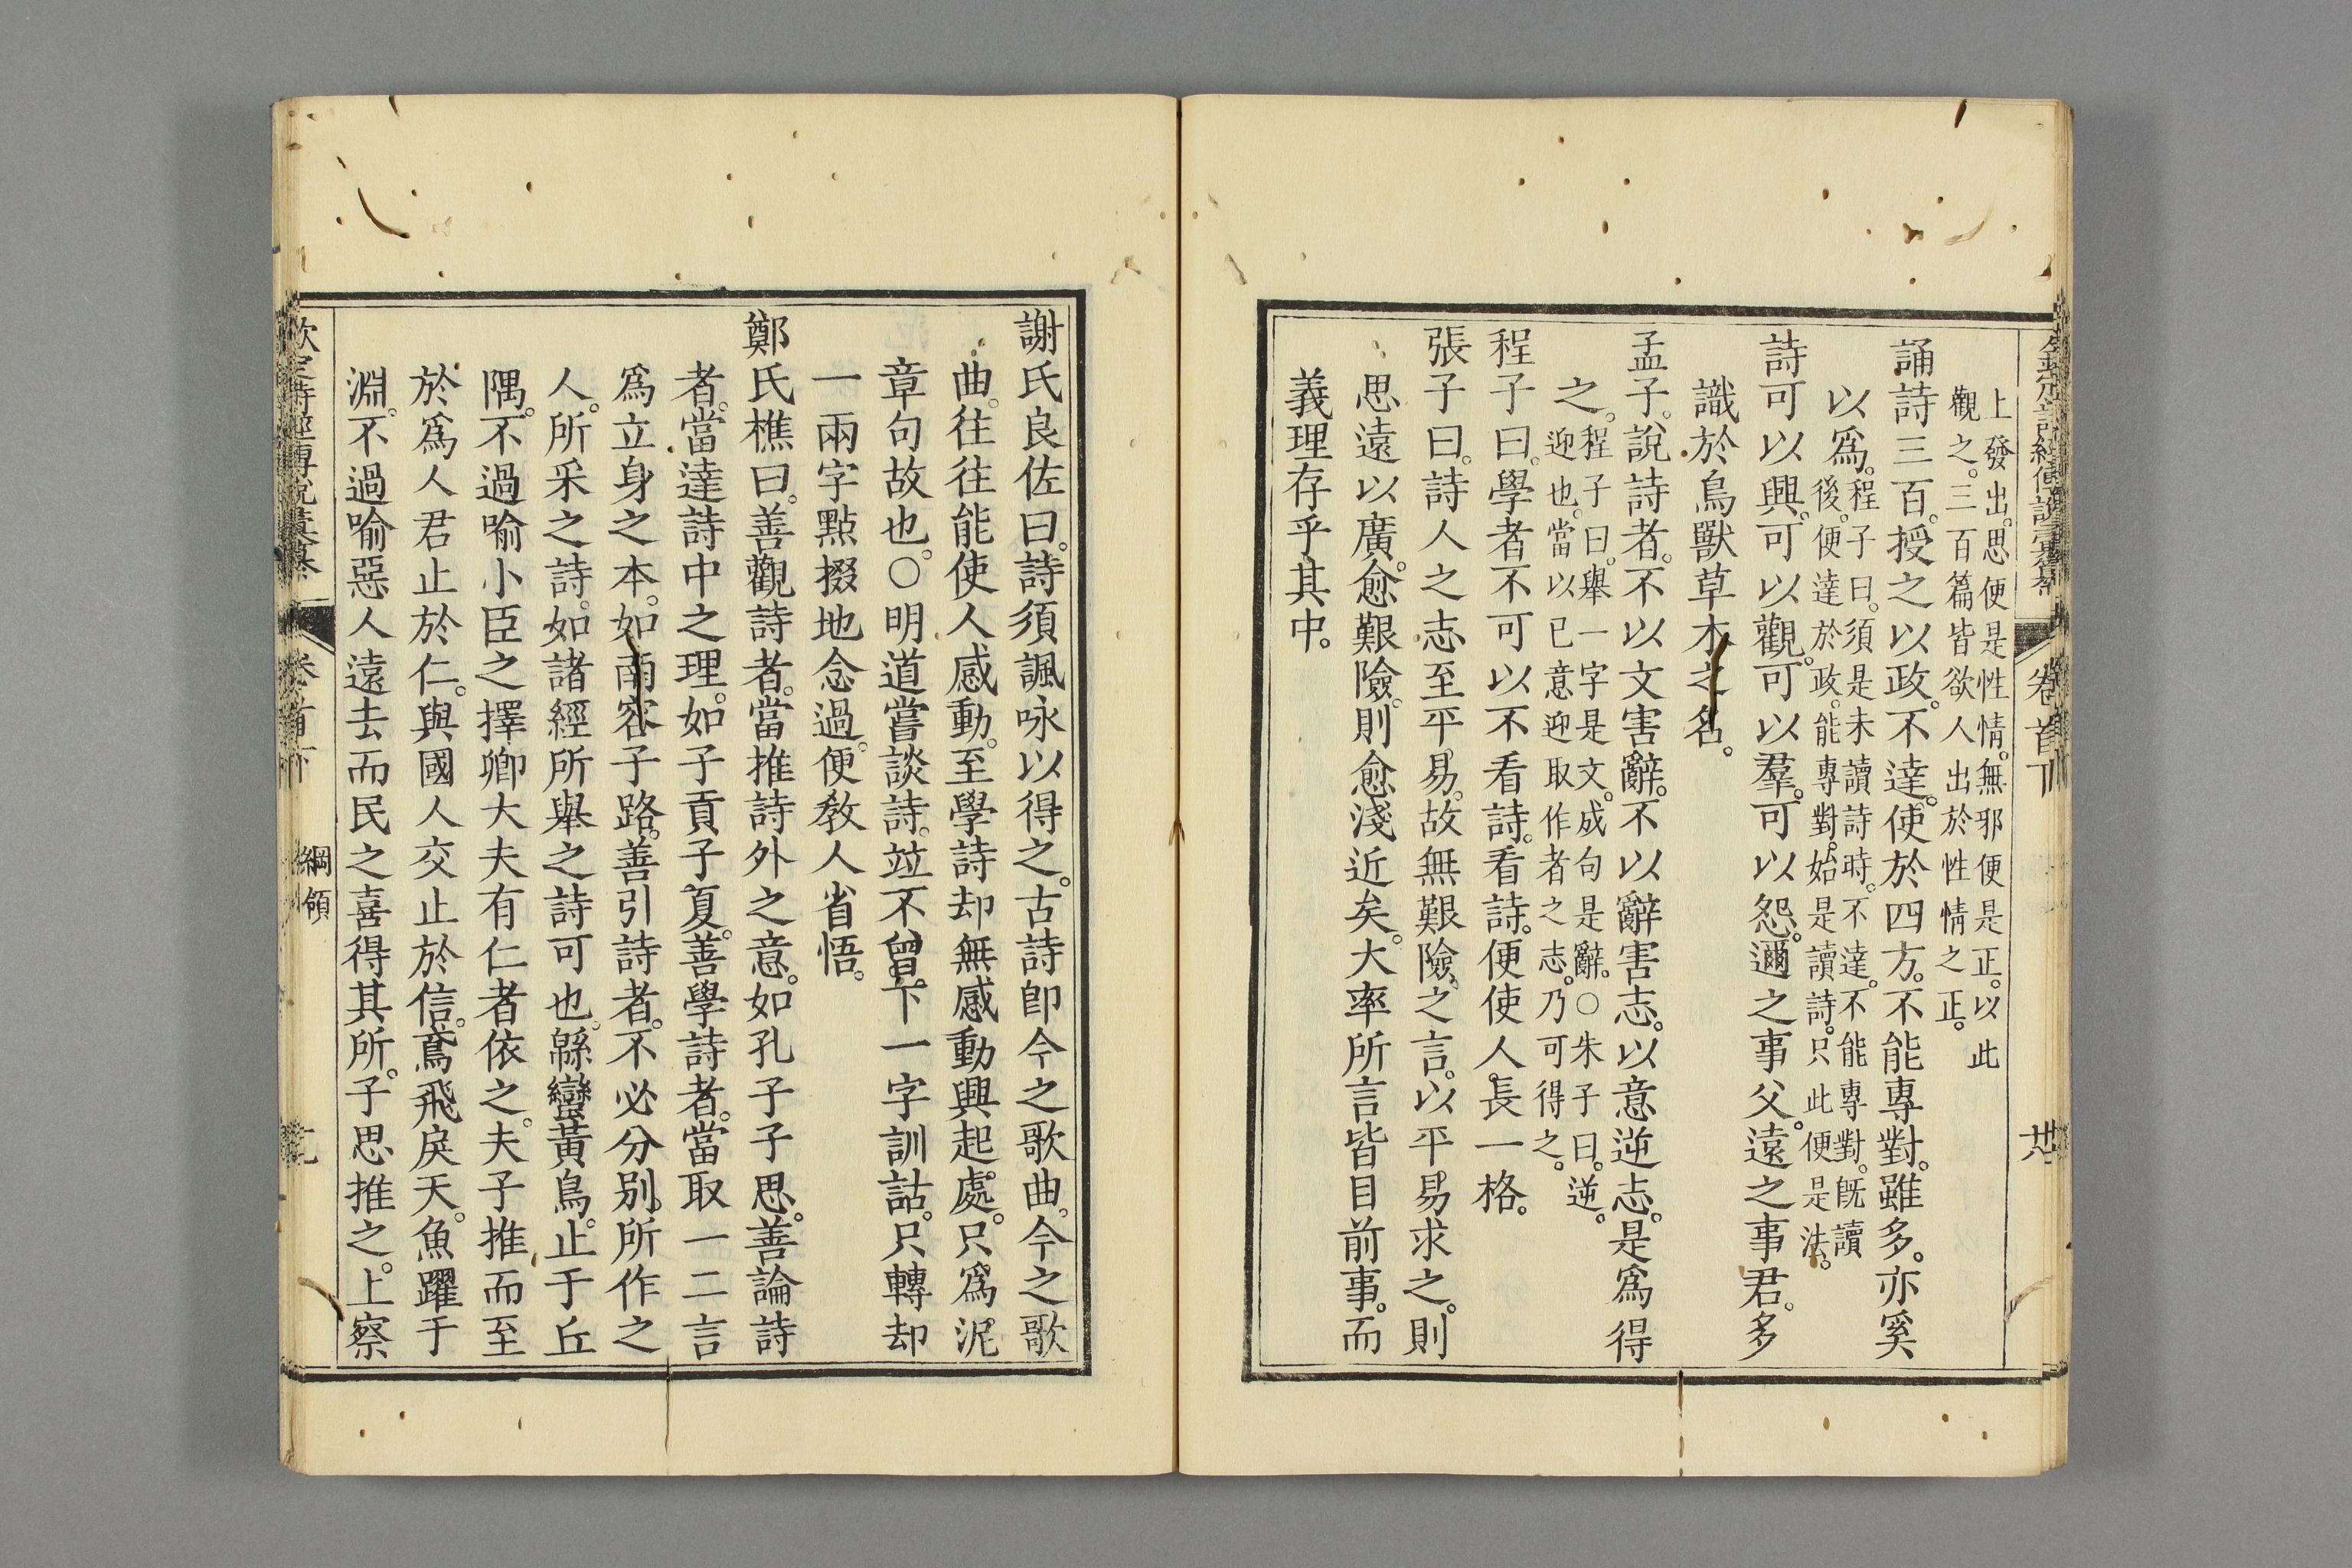 欽定詩經傳說彙纂 卷首下
上發出。思便是性情。無邪便是正。以此
觀之。三百篇皆欲人出於性情之正。
誦詩三百。授之以政。不達。使於四方。不能專對。雖多。亦奚
以爲。程子曰。須是未讀詩時。不達。不能專對。旣讀
後。便達於政。能專對。始是讀詩。只此便是法。
詩可以興。可以觀。可以羣。可以怨。邇之事父。遠之事君。多
識於鳥獸草木之名。
孟子。說詩者。不以文害辭。不以辭害志。以意逆志。是爲得
之。程子曰。舉一字是文。成句是辭。○朱子曰。逆。
迎也。當以已意迎取作者之志。乃可得之。
程子曰。學者不可以不看詩。看詩。便使人長一格。
張子曰。詩人之志至平易。故無艱險之言。以平易求之。則
思遠以廣。愈艱險。則愈淺近矣。大率所言皆目前事。而
義理存乎其中。
謝氏良佐曰。詩須諷咏以得之。古詩卽今之歌曲。今之歌
曲。往往能使人感動。至學詩却無感動興起處。只爲泥
章句故也。○明道嘗談詩。竝不曾下一字訓詁。只轉却
一兩字點掇地念過。便敎人省悟。
鄭氏樵曰。善觀詩者。當推詩外之意。如孔子子思。善論詩
者。當達詩中之理。如子貢子夏。善學詩者。當取一二言
爲立身之本。如南容子路。善引詩者。不必分別。所作之
人。所采之詩。如諸經所舉之詩可也。緜蠻黃鳥。止于丘
隅。不過喻小臣之擇卿大夫有仁者依之。夫子推而至
於爲人君止於仁。與國人交止於信。鳶飛戾天。魚躍于
淵。不過喻惡人遠去而民之喜得其所。子思推之。上察
欽定詩經傳說彙纂 卷首下 綱領